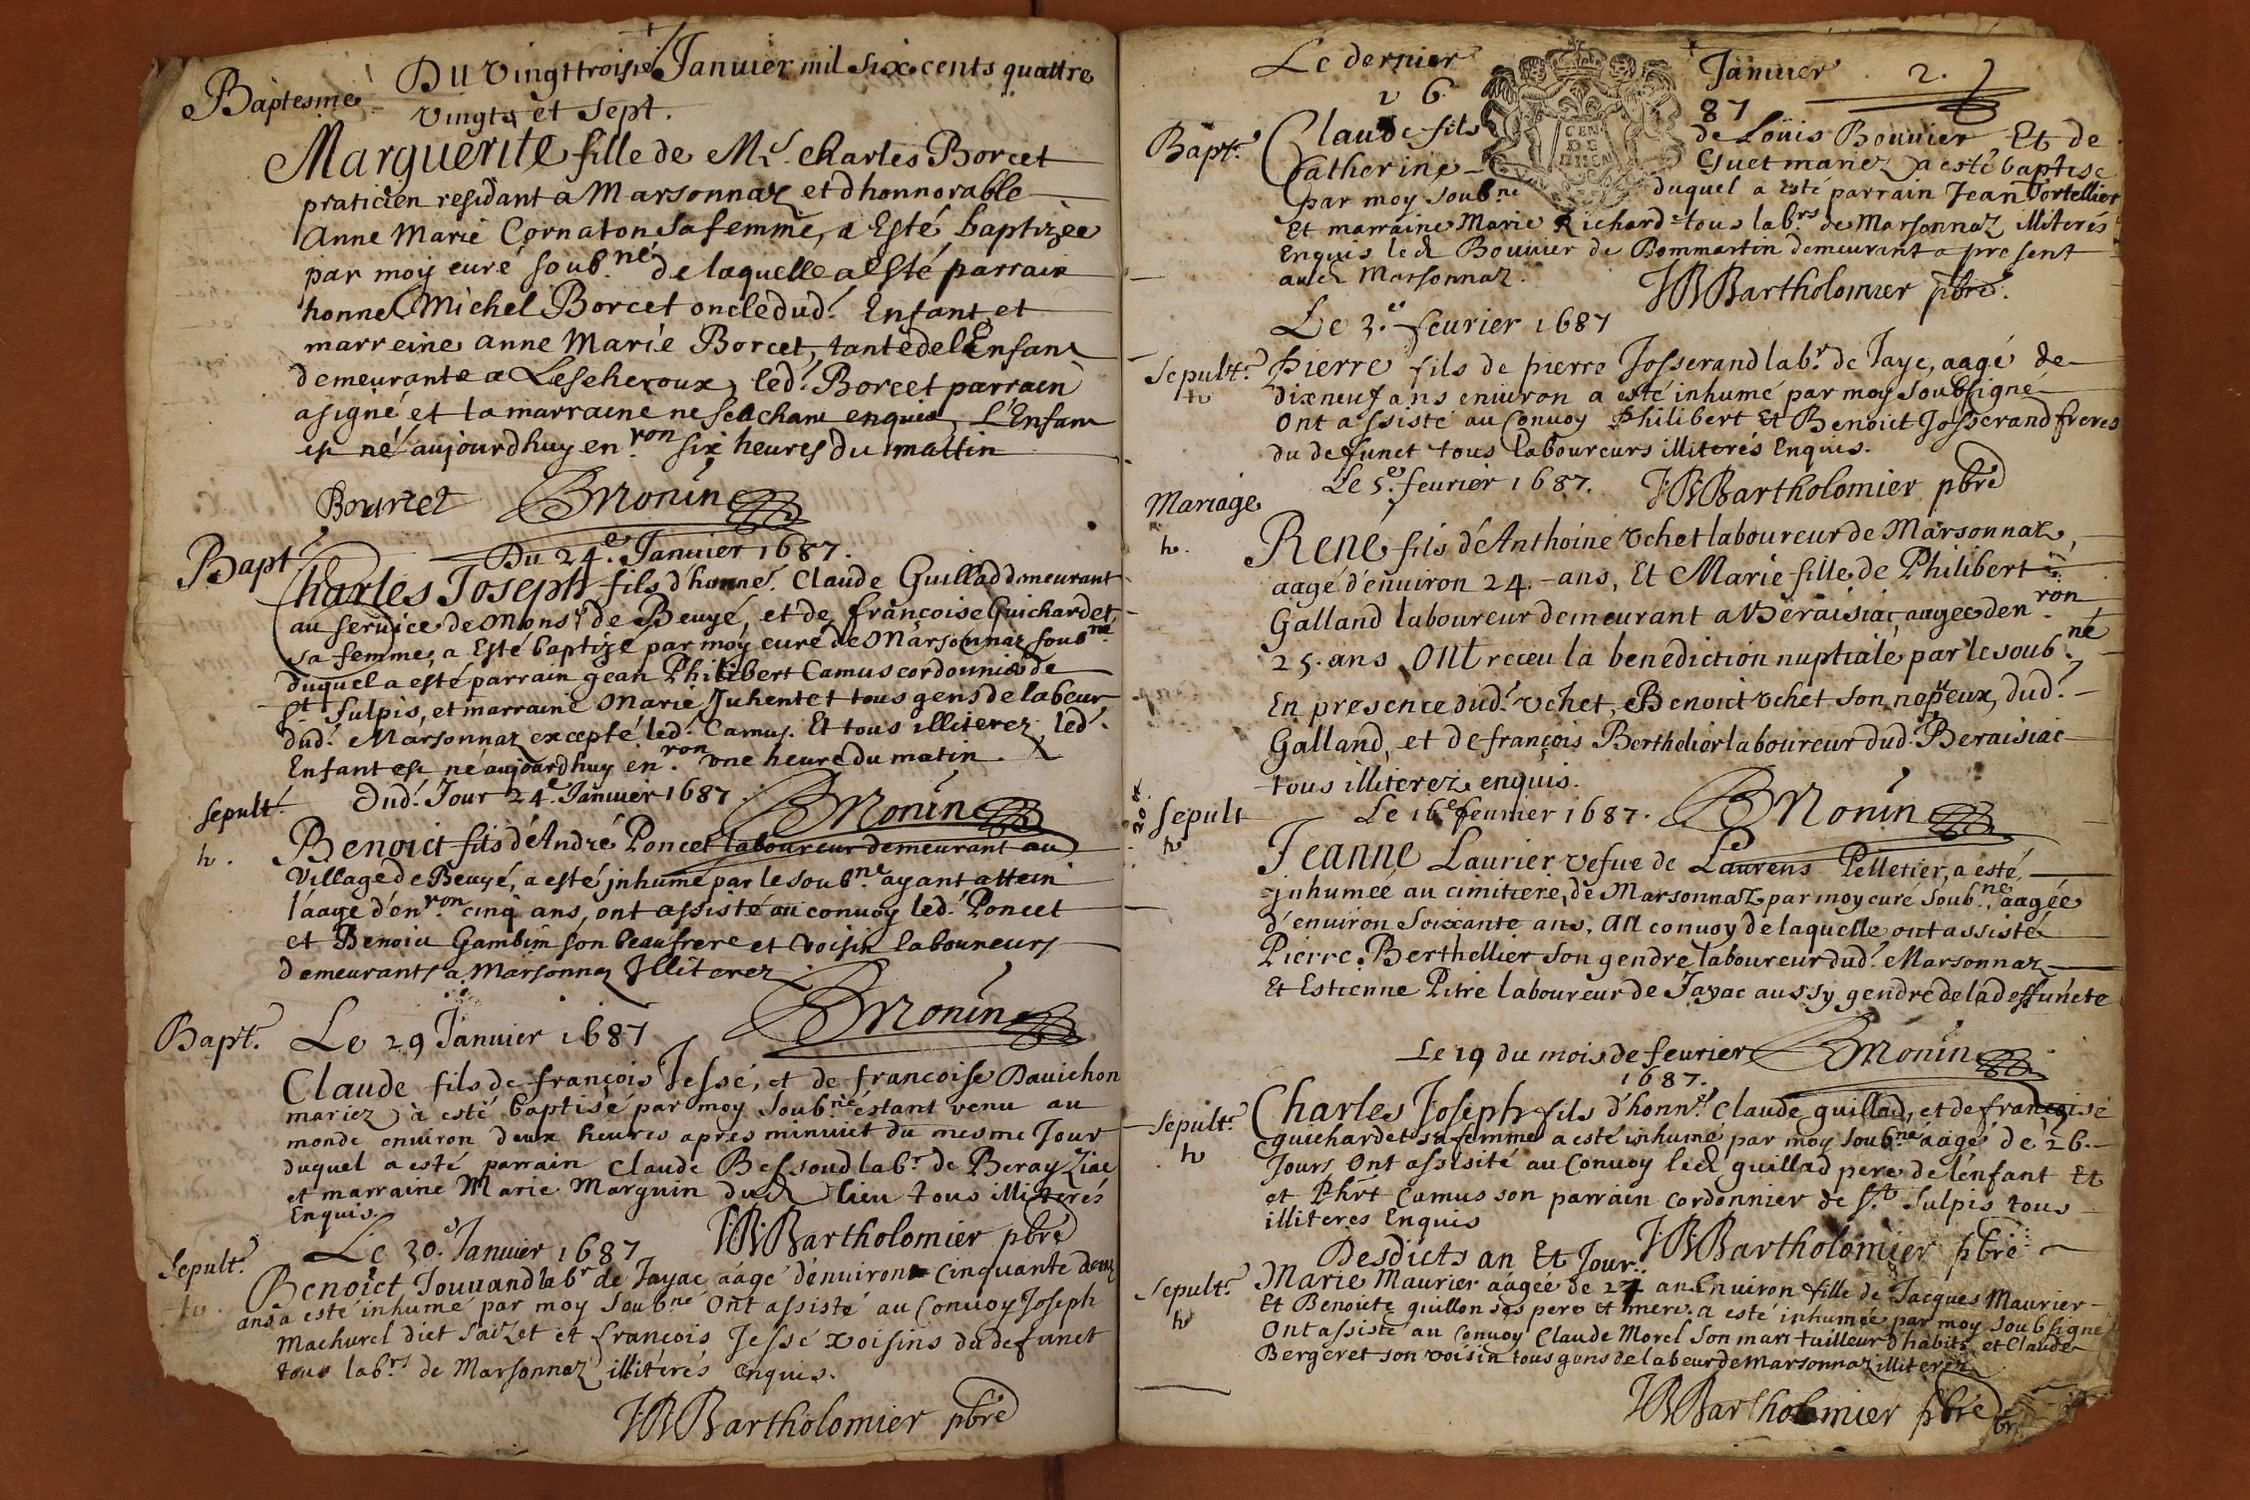 Baptesme Du vingttroisie Januier mil six cents quattre
vingts et sept.
Marguerite fille de Mr. Charles Borcet
praticien residant a Marsonnaz et dhonnorable
Anne Marie Cornaton sa femme, a Esté baptizee
par moy curé soub.né de laquelle a Esté parrain
honne Michel Borcet oncle dud.t Enfant et
marreine anne Marie Borcet, tante de lEnfant
demeurante a Lescheroux, led.t Borcet parrain
a signé et la marraine ne scachant enquise, L'Enfant
est né aujourdhuy en.ron six heures du mattin
Bourcet BMonin
Bapt.e Du 24.e Januier 1687.
Charles Joseph fils d'honne.t Claude Guillad demeurant
au seruice de Mons.r de Beuyé, et de françoise Guichardet
sa femme, a Esté baptizé par moy curé de Marsonnaz soub.né
duquel a esté parrain Jean Philibert Camus cordonnier de
St Sulpis, et marraine Marie Juhentet tous gens de labeur
dud.t Marsonnaz excepté led.t Camus. Et tous illiterez, led.t
Enfant est né aujourdhuy en.ron vne heure du matin.
Sepult.e Dud.t Jour 24.e Januier 1687. BMonin
h. Benoict fils d'André Poncet laboureur demeurant au
village de Beuyé, a esté jnhumé par le soub.né ayant attein
l'aage d'en.ron cinq ans, ont assisté au conuoy led.t Poncet
et Benoict Gambin son beaufrere et voisin laboureurs
demeurants a Marsonnaz Jlliterez
BMonin
Bapt.e Le 29 Januier 1687
Claude fils de françois Jessé, et de francoise Dauichon
mariez a esté baptisé par moy soub.né estant venu au
monde enuiron deux heures apres minuict du mesme Jour
duquel a esté parrain Claude Bessoud lab.r de Berayziac
et marraine Marie Marguin dud lieu tous illiterés
Enquis.
Le 30.e Januier 1687 JBBartholomier pbre
Sepult.e Benoict Jouuand lab.r de Jayac aagé d'enuiron cinquante deux
h. ans a esté inhumé par moy soub.né Ont assisté au conuoy Joseph
Machurel dict Saizet et françois Jessé voisins du defunct
tous lab.rs de Marsonnaz illiterés enquis.
JBBartholomier pbre
Le dernier Januier 2.
16 87
Bapt.e Claude fils de Loüis Bouuier Et de
Catherine Guet mariez a esté baptisé
par moy soub.né duquel a esté parrain Jean Tortellier
Et marraine Marie Richard tous lab.rs de Marsonnaz illiterés
Enquis led Bouuier de Dommartin demeurant a present
aud Marsonnaz. JBBartholomier pbre.
Le 3.e feurier 1687
Sepult.e Pierre fils de pierre Josserand lab.r de Jaye, aagé de
h dixneuf ans enuiron a esté inhumé par moy soubsigné
Ont assisté au conuoy Philibert Et Benoict Josserand freres
du defunct tous laboureurs illiterés Enquis.
Le 5.e feurier 1687. JBBartholomier pbre
Mariage
h. René fils d'Anthoine Vchet laboureur de Marsonnaz,
aagé d'enuiron 24. ans, Et Marie fille de Philibert
Galland laboureur demeurant a Beraisiac, aagee den.ron
25. ans Ont receu la benediction nuptiale par le soub.né
En presence dud.t Vchet, Benoict Vchet son nepueux, dud.t
Galland, et de françois Berthelier laboureur dud.t Beraisiac
tous illiterez enquis.
Sepult Le 16.e feurier 1687. BMonin
h Jeanne Laurier vefue de Laurens Pelletier, a esté
jnhumeé au cimitiere, de Marsonnaz par moy curé soub.né, aagée
d'enuiron soixante ans, Au conuoy de laquelle ont assisté
Pierre Berthellier son gendre laboureur dud.t Marsonnaz
Et Estienne Pitre laboureur de Jayac aussy gendre de la deffuncte
Le 19 du mois de feurier BMonin
1687.
Sepult.e Charles Joseph fils d'honn.e Claude guillad, et de françoise
h guichardet sa femme a esté inhumé par moy soub.né aagé de 26.
Jours, Ont assisté au conuoy led guillad pere de l'enfant Et
et Phrt Camus son parrain cordonnier de S.t Sulpis tous
illiteres Enquis JBBartholomier pbre
Desdicts an Et Jour.
Sepult.e Marie Maurier aagée de 24 ans Enuiron fille de Jacques Maurier
h Et Benoicte guillon ses pere et mere. a esté inhumée par moy soubsigné
Ont assisté au conuoy Claude Morel son mari tailleur d'habits et Claude
Bergeret son voisin tous gens de labeur de Marsonnaz illiterez
JBBartholomier pbre